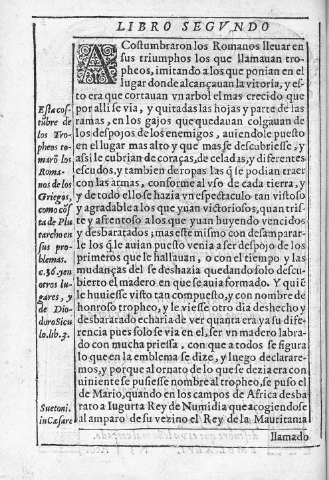 LIBRO SEGVNDO
ACostumbraron los Romanos lleuar en
sus triumphos los que llamauan tro-
pheos, imitando a los que ponian en el
lugar donde alcançauan la vitoria, y es-
to era que cortauan vn arbol el mas crecido que
por alli se via, y quitadas las hojas y parte de las
ramas, en los gajos que quedauan colgauan de
los despojos de los enemigos, auiendole puesto
en el lugar mas alto y que mas se descubriesse, y
assi le cubrian de coraças, de celadas, y diferentes
escudos, y tambien de ropas las q̃ le podian traer
con las armas, conforme al vso de cada tierra, y
y de todo ello se hazia vn espectaculo tan vistoso
y agradable a los que yuan victoriosos, quan tris-
te y afrentoso a los que yuan huyendo vencidos
y desbaratados; mas este mismo con desamparar-
le los q̃ le auian puesto venia a ser despojo de los
primeros que le hallauan, o con el tiempo y las
mudanças del se deshazia quedando solo descu-
bierto el madero en que se auia formado. Y quiẽ
le huuiesse visto tan compuesto, y con nombre de
honroso tropheo, y le viesse otro dia deshecho y
desbaratado echaria de ver quanta era ya su dife-
rencia pues solo se via en el, ser vn madero labra-
do con mucha priessa, con que a todos se figura
lo que en la emblema se dize, y luego declarare-
mos, y porque al ornato de lo que se dezia era con
uiniente se pusiesse nombre al tropheo, se puso el
de Mario, quando en los campos de Africa desba
rato a Iugurta Rey de Numidia que acogiendose
al amparo de su vezino el Rey de la Mauritania
llamado
Esta cos-
tũbre de
los Tro-
pheos to-
marõ los
Roma-
nos de los
Griegos,
como cõs
ta de Plu
tarcho en
sus pro-
blemas.
c.36. y en
otros lu-
gares, y
de Dio-
doro Sicu
lo. lib. 3.
Suetoni.
in Cæsare